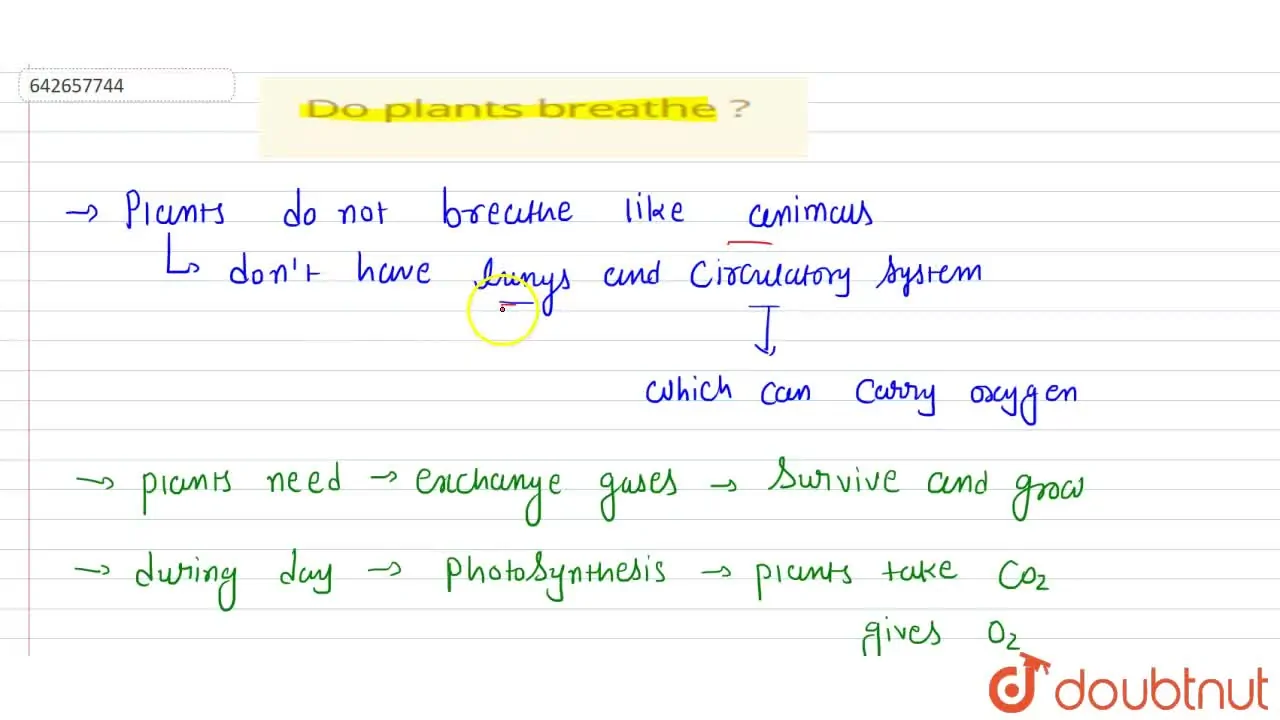 642657744
Do plants breathe ?
→ Plants do not breathe like animals
↳ don't have lungs and Circulatory System
↓
which can carry oxygen
→ plants need → exchange gases → Survive and grow
→ during day → photosynthesis → plants take CO₂
gives O₂
doubtnut